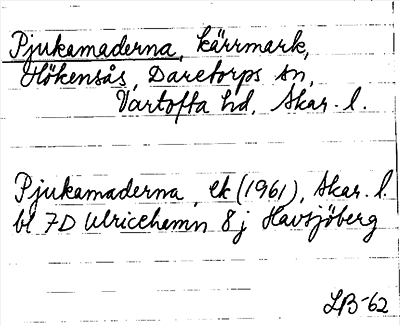 Pjukamaderna, kärrmark,
Hökensås, Daretorps sn,
Vartofta hd, Skar. l.
Pjukamaderna, ek (1961), Skar. l.
bl 7D Ulricehamn 8j Havsjöberg
LB-62